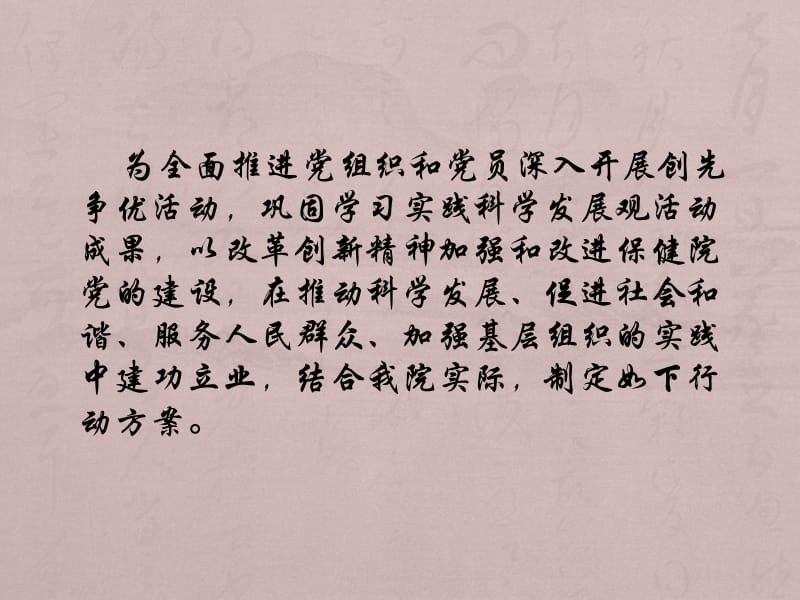 为全面推进党组织和党员深入开展创先
争优活动，巩固学习实践科学发展观活动
成果，以改革创新精神加强和改进保健院
党的建设，在推动科学发展、促进社会和
谐、服务人民群众、加强基层组织的实践
中建功立业，结合我院实际，制定如下行
动方案。